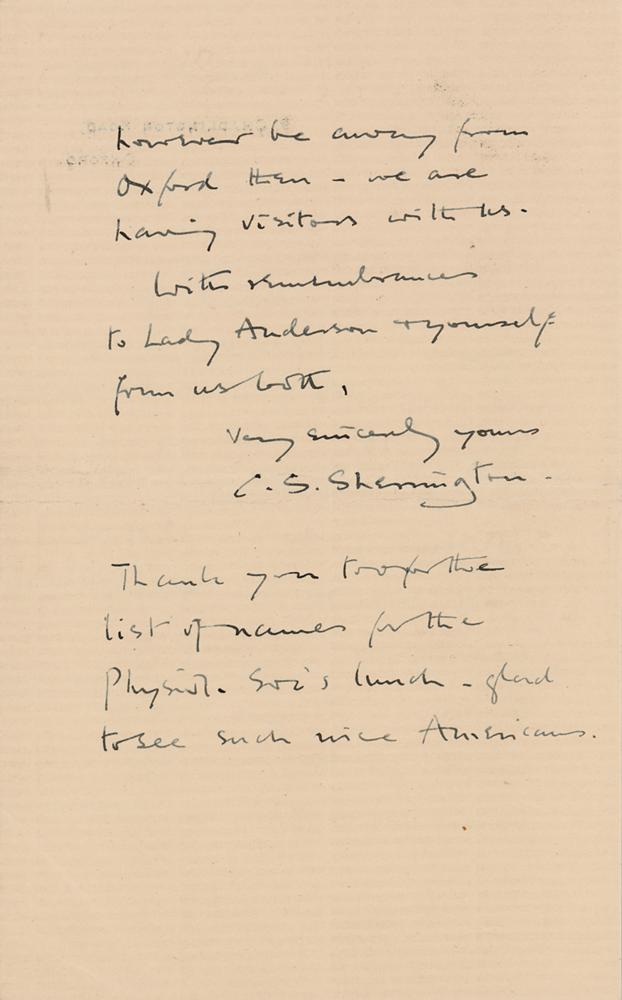 however be away from
Oxford then - we are
having visitors with us.
With remembrances
to Lady Anderson + yourself
from us both,
Very sincerely yours
C. S. Sherrington.
Thank you too for the
list of names for the
Physiol. Soc's lunch - glad
to see such nice Americans.